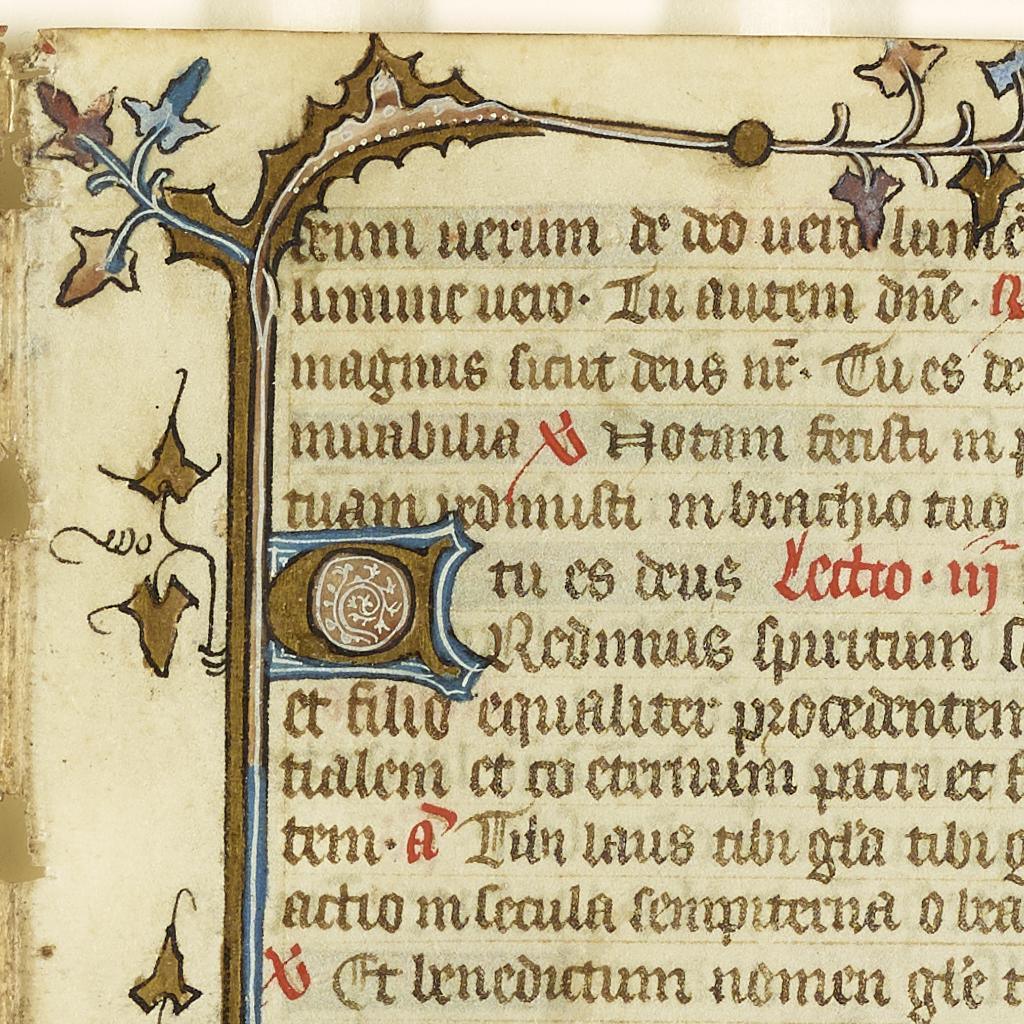 deum uerum de deo uero lumē
lumine uero. Tu autem dn̄e. R
magnus sicut deus nr̄. Tu es de
mirabilia V Notam fecisti in p
tuam redimisti in brachio tuo
tu es deus Lectio. iij
CRedimus spiritum s
et filio equaliter procedentem
tialem et co eternum patri et f
tem. a Tibi laus tibi gl'a tibi g
actio in secula sempiterna o bea
V Et benedictum nomen gl'e t